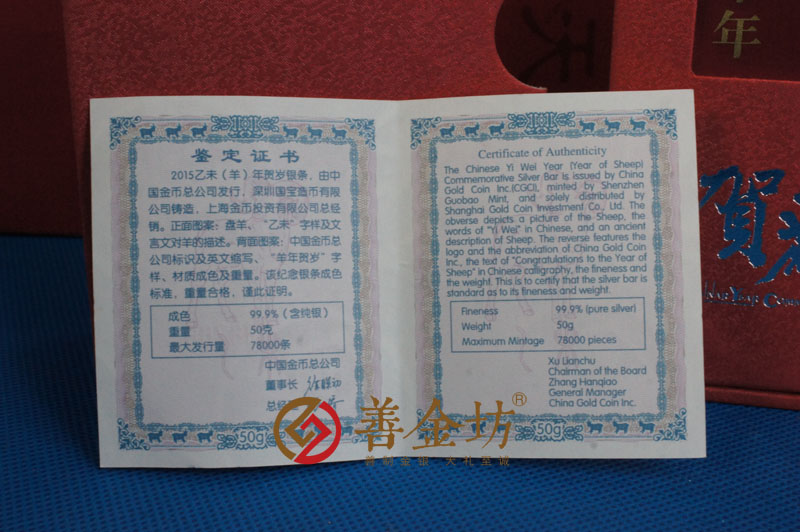 年
鉴定证书
2015乙未（羊）年贺岁银条，由中
国金币总公司发行，深圳国宝造币有限
公司铸造，上海金币投资有限公司总经
销。正面图案：盘羊、“乙未”字样及文
言文对羊的描述。背面图案：中国金币总
公司标识及英文缩写、“羊年贺岁”字
样、材质成色及重量。该纪念银条成色
标准，重量合格，谨此证明。
成色 99.9%（含纯银）
重量 50克
最大发行量 78000条
中国金币总公司
董事长
总经
50g
Certificate of Authenticity
The Chinese Yi Wei Year (Year of Sheep)
Commemorative Silver Bar is issued by China
Gold Coin Inc.(CGCI), minted by Shenzhen
Guobao Mint, and solely distributed by
Shanghai Gold Coin Investment Co., Ltd. The
obverse depicts a picture of the Sheep, the
words of "Yi Wei" in Chinese, and an ancient
description of Sheep. The reverse features the
logo and the abbreviation of China Gold Coin
Inc., the text of "Congratulations to the Year of
Sheep" in Chinese calligraphy, the fineness and
the weight. This is to certify that the silver bar is
standard as to its fineness and weight.
Fineness 99.9% (pure silver)
Weight 50g
Maximum Mintage 78000 pieces
Xu Lianchu
Chairman of the Board
Zhang Hanqiao
General Manager
China Gold Coin Inc.
50g
賀歲
Year Comm
善金坊®